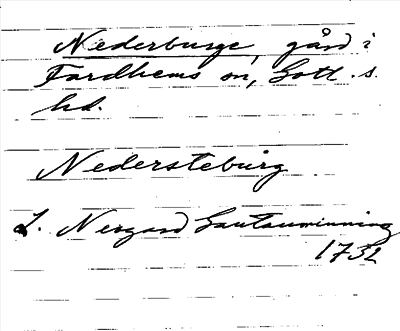 Nederburge, gård i
Fardhems sn, Gotl. s.
hd.
Nedersteburg
L. Nergard Lautauminning
1732